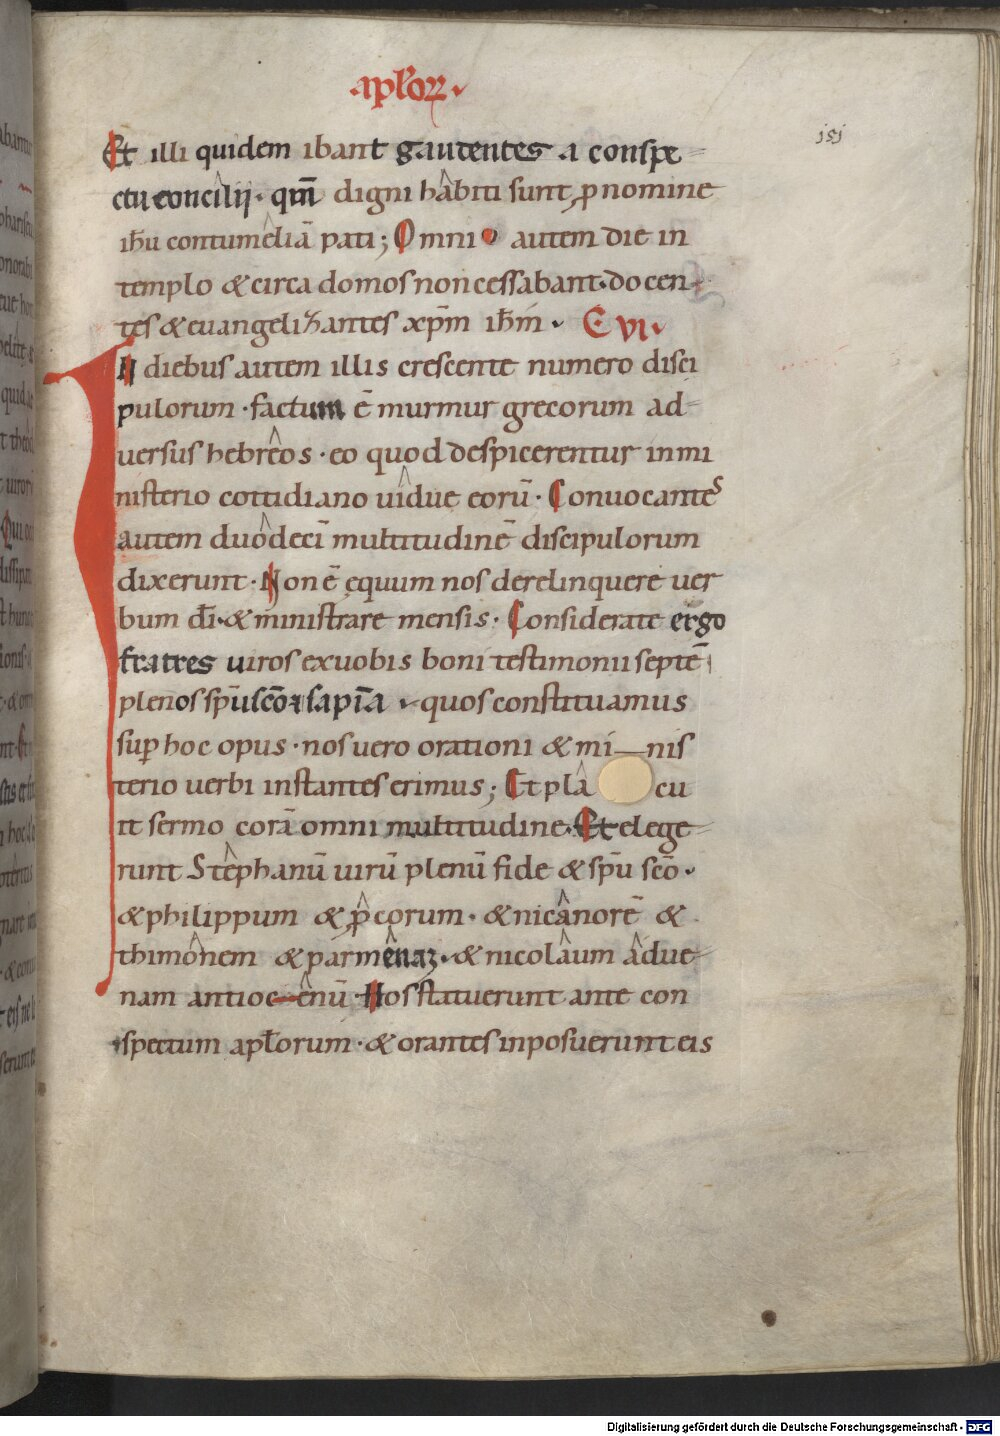 ·apl̄oꝝ·
isi
Et illi quidem ibant gaudentes a conspe
ctu concilii· qm̄ digni habiti sunt ꝓ nomine
ih̄u contumeliā pati; Omni autem die in
templo & circa domos non cessabant· docen
tes & euangelizantes xp̄m ih̄m· C VI·
In diebus autem illis crescente numero disci
pulorum· factum ē murmur grecorum ad
uersus hebreos· eo quod despicerentur in mi
nisterio cottidiano uidue eorū· Conuocantes
autem duodecī multitudinē discipulorum
dixerunt· Non ē ęquum nos derelinquere uer
bum dī· & ministrare mensis· Considerate ergo
fratres uiros ex uobis boni testimonii septē
plenos sp̄u sc̄o & sapīa· quos constituamus
suꝑ hoc opus· nos uero orationi & mi—nis
terio uerbi instantes erimus; Et pla cu
it sermo corā omni multitudine· Et elege
runt Stephanū uirū plenū fide & sp̄u sc̄o·
& philippum & ꝓcorum· & nicanorē &
thimonem & parmenaz· & nicolaum adue
nam antioc—enū· Hos statuerunt ante con
spectum apl̄orum· & orantes inposuerunt eis
Digitalisierung gefördert durch die Deutsche Forschungsgemeinschaft - DFG